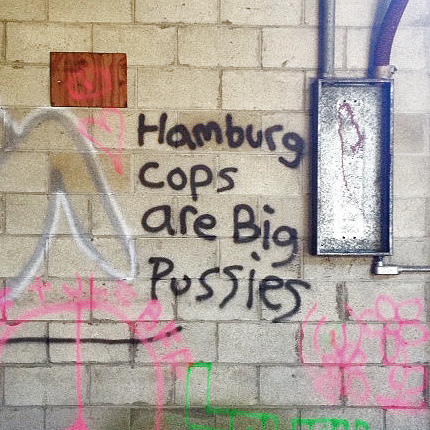 Hamburg
cops
are Big
Pussies